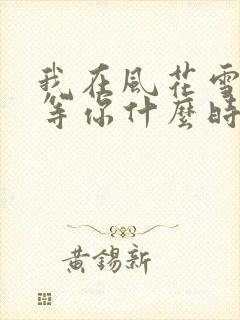 我在風花雪
等你什麼時
黃錫新